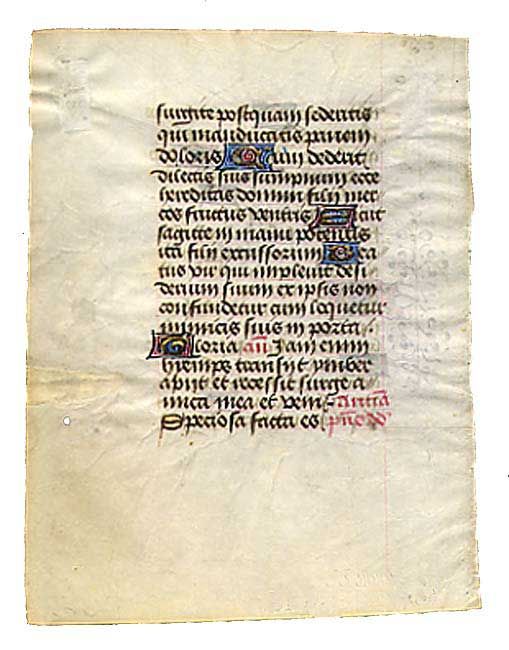 surgite postquam sederitis
qui manducatis panem
doloris Cum dederit
dilectis suis sompnum ecce
hereditas domini filij mer
ces fructus ventris Sicut
sagitte in manu potentis
ita filij excussorum Bea
tus vir qui implevit desi
derium suum ex ipsis non
confundetur cum loquetur
inimicis suis in porta
Gloria añ Iam enim
hiemps transijt ymber
abijt et recessit surge a
mica mea et veni
Speciosa facta es